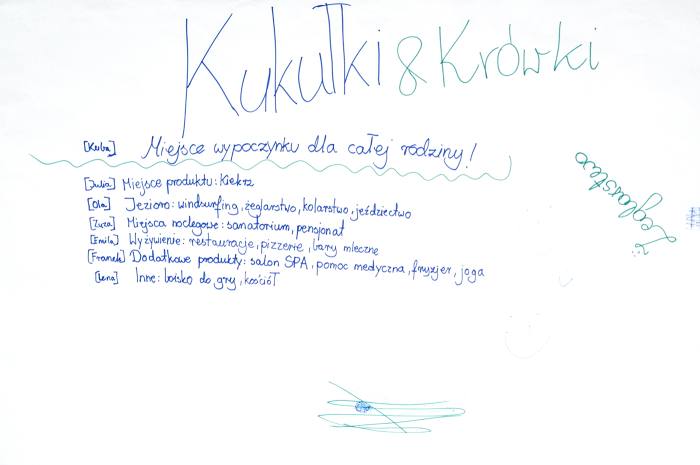 Kukułki & Krówki
[Kuba] Miejsce wypoczynku dla całej rodziny!
[Julia] Miejsce produktu: Kiekrz
[Ola] Jezioro: windsurfing, żeglarstwo, kolarstwo, jeździectwo
[Zuza] Miejsca noclegowe: sanatorium, pensjonat
[Emila] Wyżywienie: restauracje, pizzerie, bary mleczne
[Franek] Dodatkowe produkty: salon SPA, pomoc medyczna, fryzjer, joga
[Lena] Inne: boisko do gry, kościół
Żeglarstwo